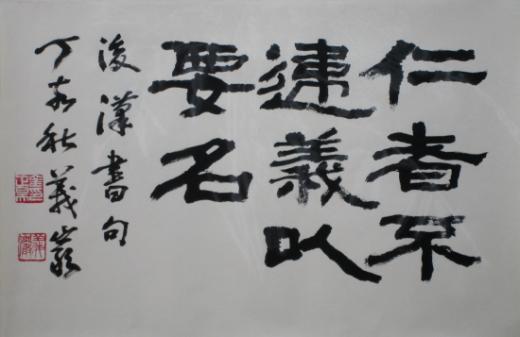 仁者不
違義以
要名
後漢書句
丁亥秋義巖